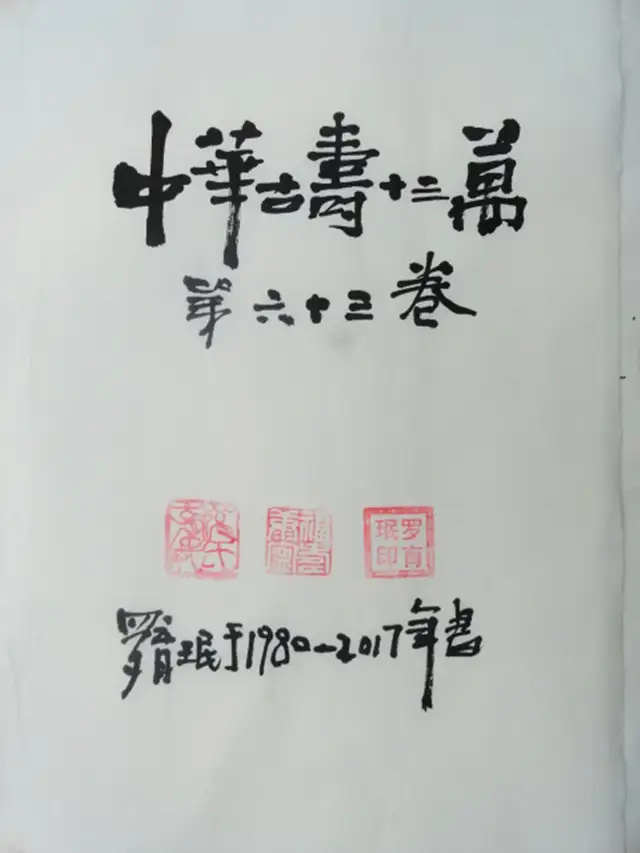 中華古壽十二萬
第六十三卷
罗育珉印
羅育珉于1980—2017年書